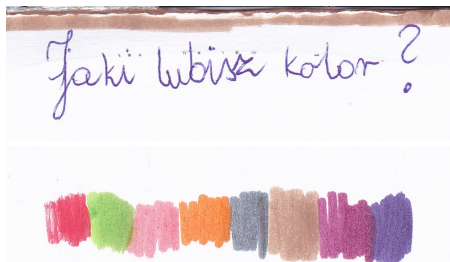 Jaki lubisz kolor ?